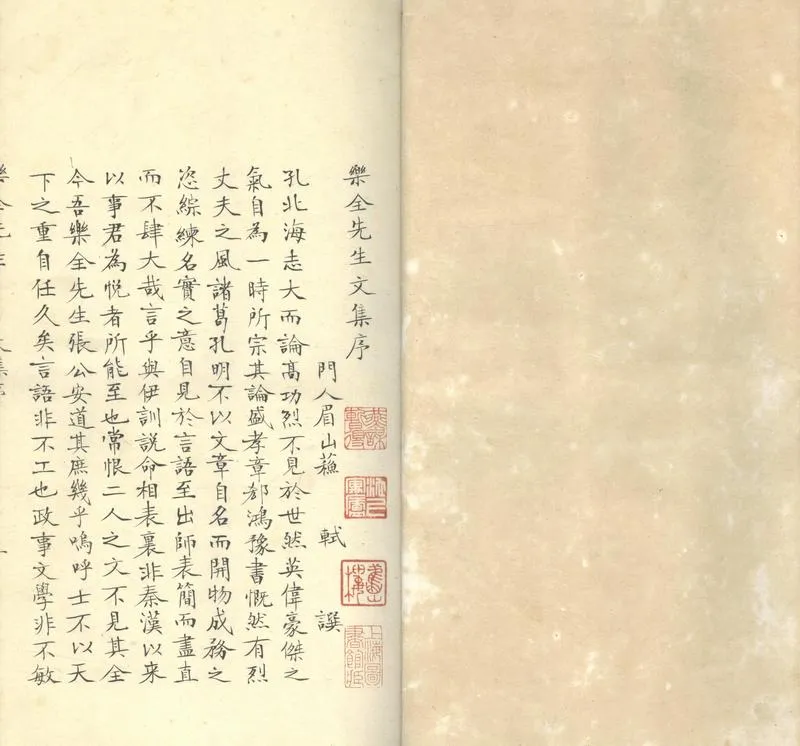 樂全先生文集序
門人眉山蘓 軾 譔
孔北海志大而論髙功烈不見於世然英偉豪傑之
氣自為一時所宗其論盛孝章郗鴻豫書慨然有烈
丈夫之風諸葛孔明不以文章自名而開物成務之
恣綜練名實之意自見於言語至出師表簡而盡直
而不肆大哉言乎與伊訓説命相表裏非秦漢以来
以事君為悦者所能至也常恨二人之文不見其全
今吾樂全先生張公安道其庶幾乎嗚呼士不以天
下之重自任久矣言語非不工也政事文學非不敏